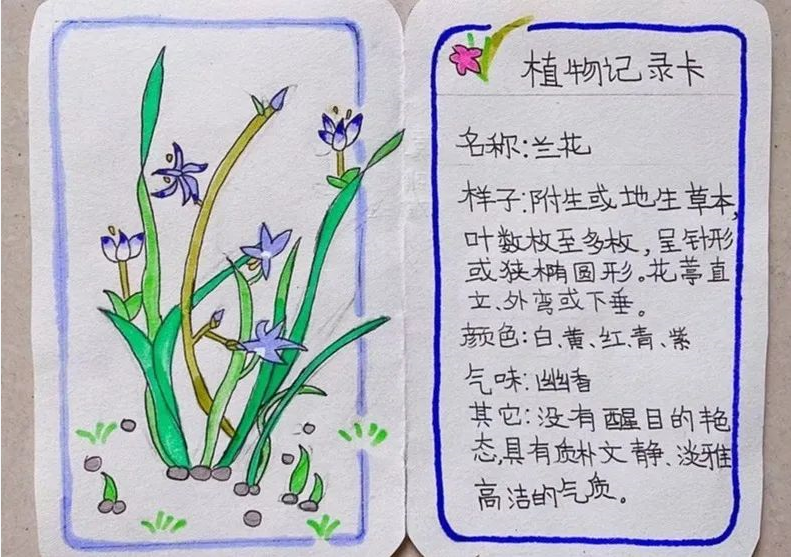 植物记录卡
名称:兰花
样子:附生或地生草本,
叶数枚至多枚,呈针形
或狭椭圆形。花葶直
立、外弯或下垂。
颜色:白、黄、红、青、紫
气味:幽香
其它:没有醒目的艳
态,具有质朴文静、淡雅
高洁的气质。